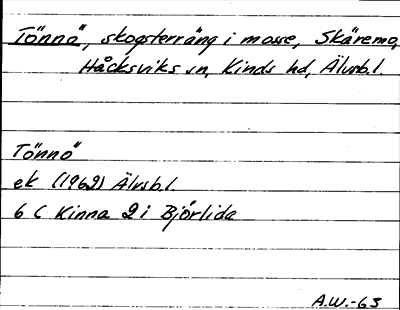 Tönnö, skogsterräng i mosse, Skäremo,
Håcksviks sn, Kinds hd, Älvsb.l.
Tönnö
ek (1962) Älvsb.l.
6 C Kinna 2 i Björlida
A.W.-63